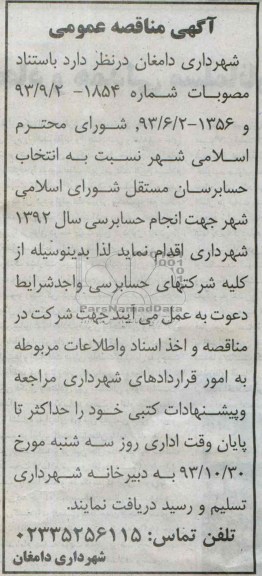 آگهی مناقصه عمومی
شهرداری دامغان درنظر دارد باستناد
مصوبات شماره ۱۸۵۴- ۹۳/۹/۲
و ۱۳۵۶-۹۳/۶/۲, شورای محترم
اسلامی شهر نسبت به انتخاب
حسابرسان مستقل شورای اسلامی
شهر جهت انجام حسابرسی سال ۱۳۹۲
شهرداری اقدام نماید لذا بدینوسیله از
کلیه شرکتهای حسابرسی واجدشرایط
دعوت به عمل می آیند جهت شرکت در
ParsNamadData
مناقصه و اخذ اسناد واطلاعات مربوطه
به امور قراردادهای شهرداری مراجعه
وپیشنهادات کتبی خود را حداکثر تا
پایان وقت اداری روز سه شنبه مورخ
۹۳/۱۰/۳۰ به دبیرخانه شهرداری
تسلیم و رسید دریافت نمایند.
تلفن تماس: ۰۲۳۳۵۲۵۶۱۱۵
شهرداری دامغان